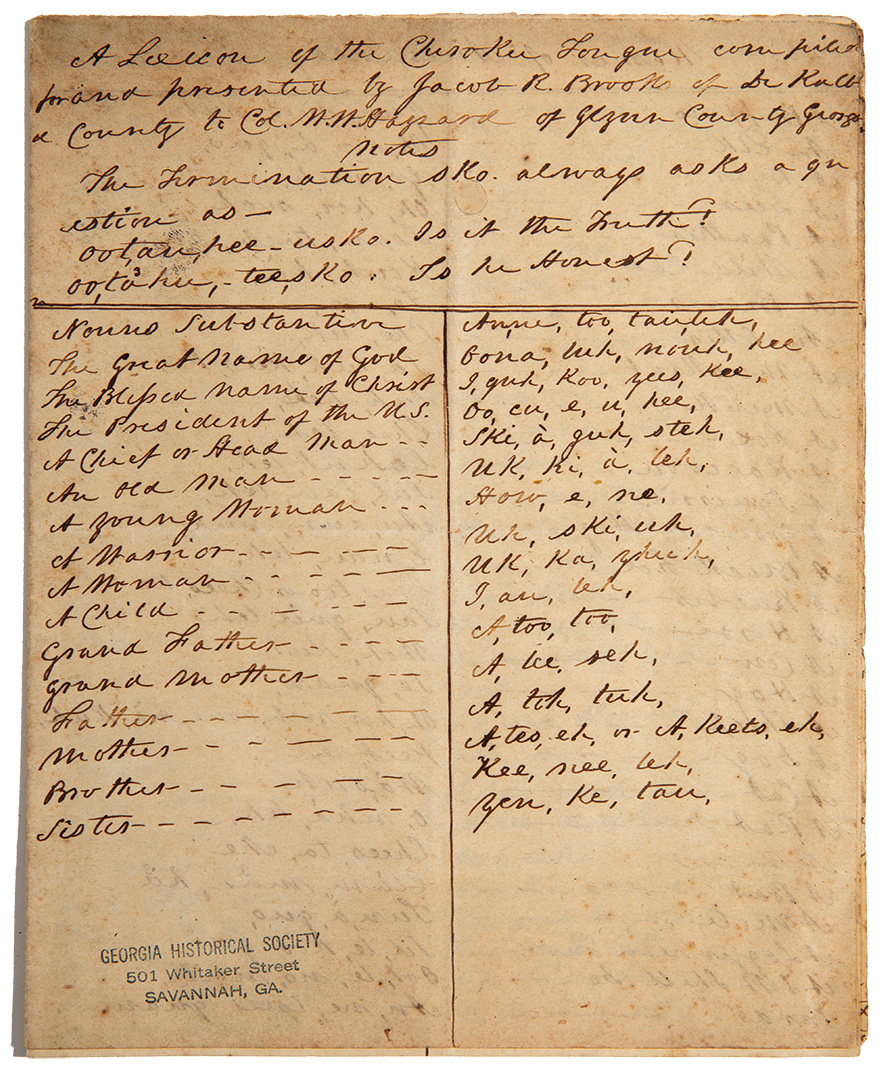 A Lexicon of the Cherokee Tongue compiled
for and presented by Jacob R. Brooks of De Kalb
County to Col. W.W. Hazzard of Glynn County Georgia
Notes
The Termination sko. always asks a qu
estion as —
oo,tau,hee - usko. Is it the Truth?
oo,ta,hu, - tee,sko. Is he Honest?
Nouns Substantive
The Great Name of God
The Blessed name of Christ
The President of the U.S.
A Chief or Head Man - -
An Old Man - - - - -
A Young Woman - - -
A Warrior - - - - -
A Woman - - - - - -
A Child - - - - - -
Grand Father - - - -
grand Mother - - - -
Father - - - - - - -
Mother - - - - - - -
Brother - - - - - -
Sister - - - - - - -
A,ne, too, tau,uh,
Oo,na, luh, nouh, hee
I, guh, Koo, yees, Kee,
Oo, cu, e, u, hee,
Ski, à, guh, steh,
UK, Ki, à, leh,
How, e, ne,
Uh, ski, uh,
UK, Ka, yhuh,
I, au, leh,
A, too, too,
A, le, seh,
A, toh, tuh,
A, tes, eh, or A, Keets, eh,
Kee, nee, leh,
Yen, Ke, tau,
GEORGIA HISTORICAL SOCIETY
501 Whitaker Street
SAVANNAH, GA.